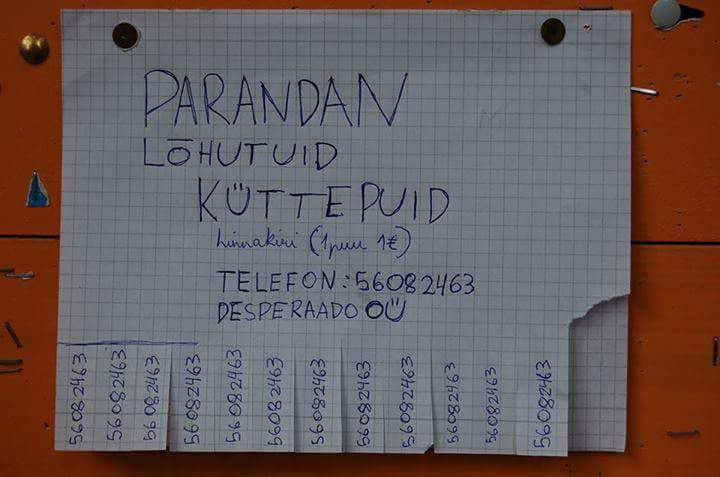 PARANDAN
LÕHUTUID
KÜTTEPUID
hinnakiri (1 puu 1€)
TELEFON: 56082463
DESPERAADO OÜ
56082463
56082463
56082463
56082463
56082463
56082463
56082463
56082463
56082463
56082463
56082463
56082463